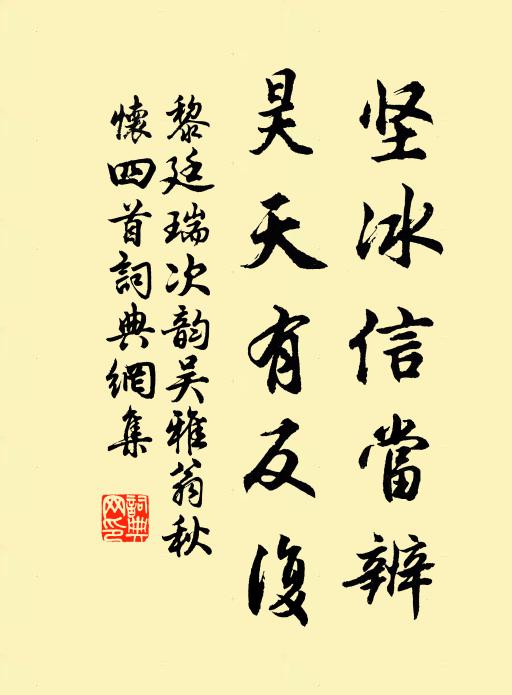 坚冰信當辨
昊天有反復
黎廷瑞次韵吴雅翁秋
懷四首詞典網集
詞典
网印